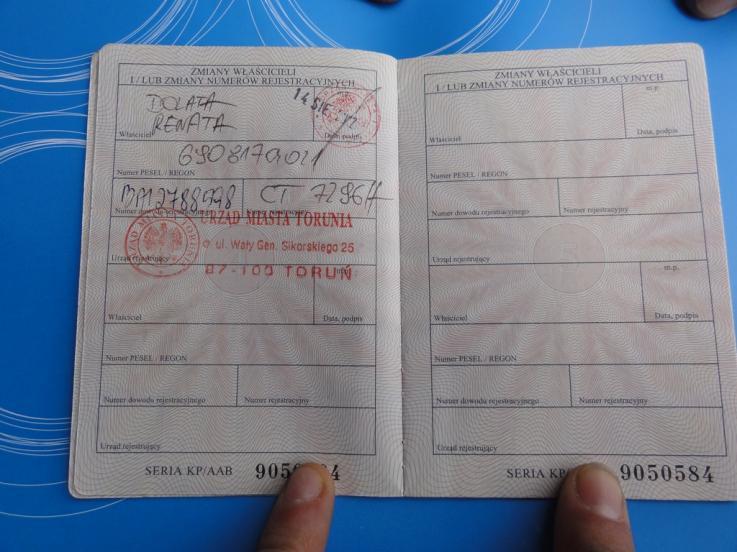 ZMIANY WŁAŚCICIELI
I / LUB ZMIANY NUMERÓW REJESTRACYJNYCH
DOLATA
RENATA
14 SIE.
Właściciel
Data, podpis
Numer PESEL / REGON
CT 7296H
Numer dowodu rejestracyjnego
URZĄD MIASTA TORUNIA
ul. Wały Gen. Sikorskiego 25
87-100 TORUŃ
Urząd rejestrujący
m.p.
Właściciel
Data, podpis
Numer PESEL / REGON
Numer dowodu rejestracyjnego
Numer rejestracyjny
Urząd rejestrujący
SERIA KP/AAB
ZMIANY WŁAŚCICIELI
I / LUB ZMIANY NUMERÓW REJESTRACYJNYCH
m.p.
Właściciel
Data, podpis
Numer PESEL / REGON
Numer dowodu rejestracyjnego
Numer rejestracyjny
Urząd rejestrujący
m.p.
Właściciel
Data, podpis
Numer PESEL / REGON
Numer dowodu rejestracyjnego
Numer rejestracyjny
Urząd rejestrujący
SERIA 9050584